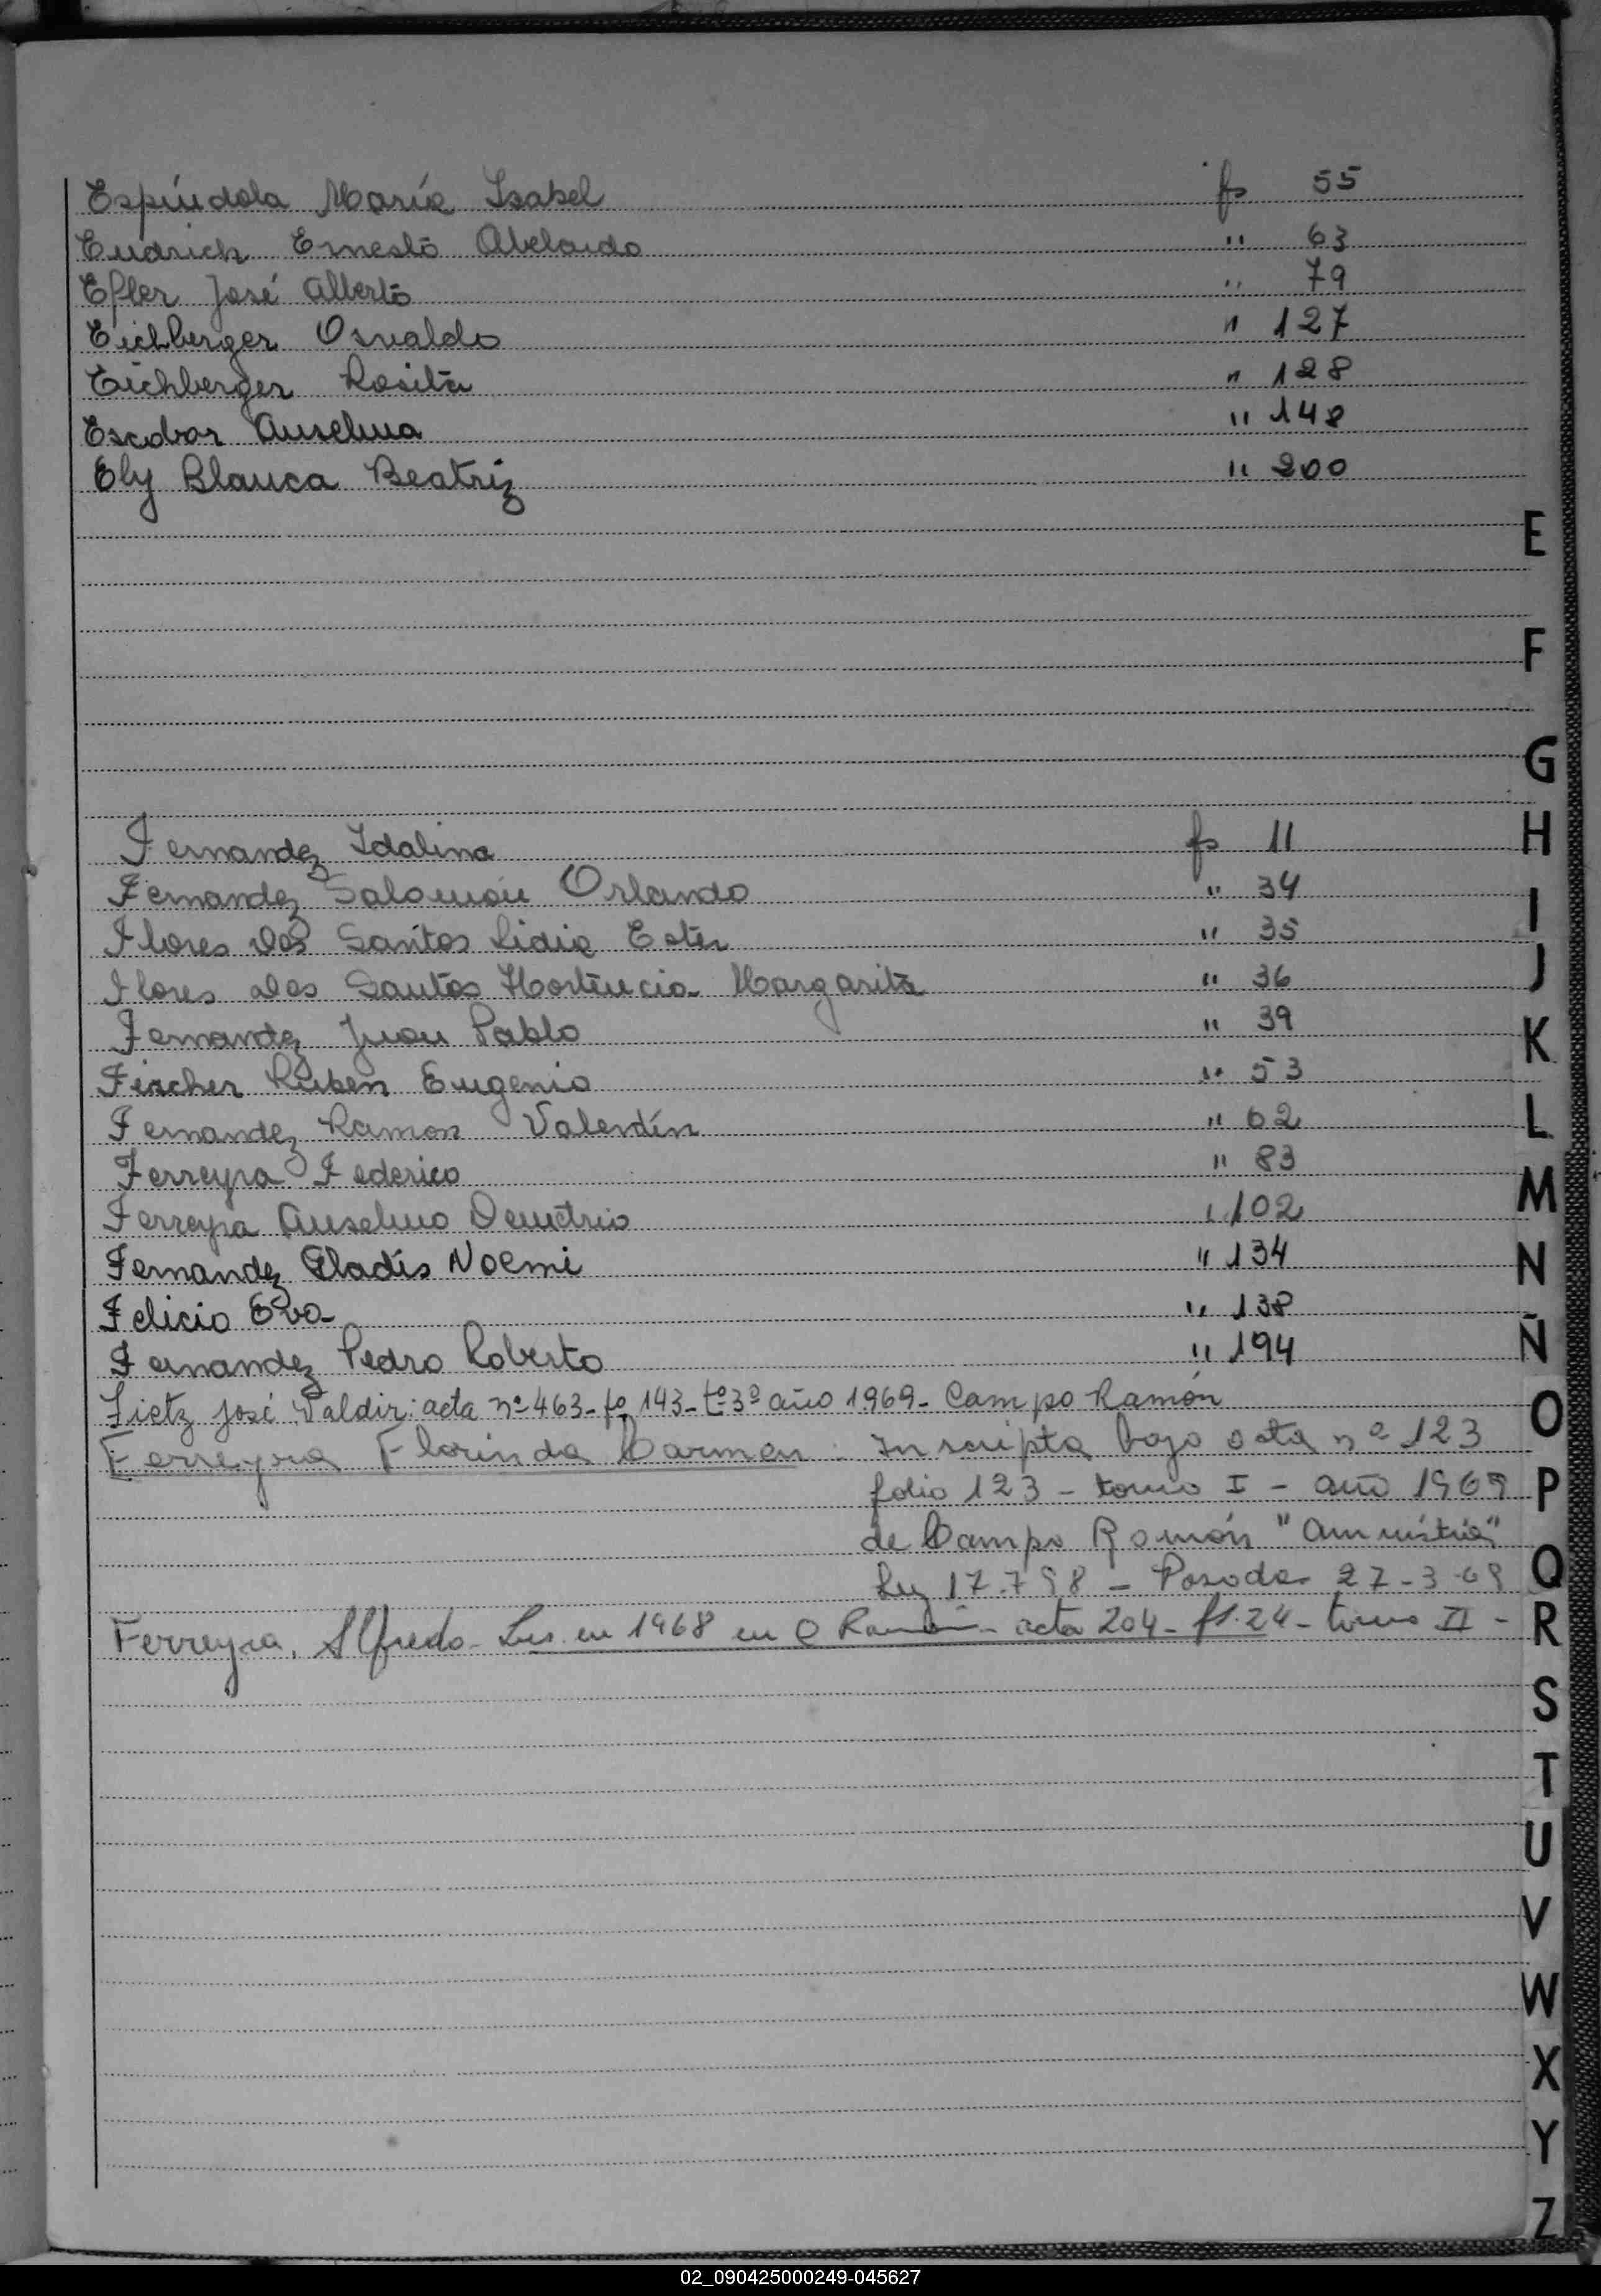 Espíndola María Isabel fs 55
Eudrich Ernesto Abelardo " 63
Efler José Alberto " 79
Eichberger Osvaldo " 127
Eichberger Rosita " 128
Escobar Anselma " 148
Ely Blanca Beatriz " 200
E
F
G
Fernandez Idalina fs 11
H
Fernandez Salomón Orlando " 34
I
Flores Dos Santos Lidia Ester " 35
Flores Dos Santos Hortencia Margarita " 36
J
Fernandez Juan Pablo " 39
K
Fischer Ruben Eugenio " 53
Fernandez Ramon Valentín " 62
L
Ferreyra Federico " 83
Ferreyra Anselmo Demetrio " 102
M
Fernandez Gladis Noemi " 134
N
Felicio Eva " 138
Fernandez Pedro Roberto " 194
Ñ
Fietz José Valdir: acta nº 463 - fº 143 - tº 3º año 1969 - Campo Ramón
O
Ferreyra Florinda Carmen - Inscripta bajo acta nº 123
folio 123 - tomo I - año 1969
P
de Campo Ramón "Amnistia"
Ley 17.798 - Posadas 27-3-69
Q
Ferreyra, Alfredo - Ins. en 1968 en C Ramón - acta 204 - fs. 24 - tomo II -
R
S
T
U
V
W
X
Y
Z
02_090425000249-045627